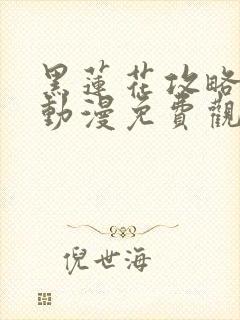 黑蓮花攻略
動漫免費觀
倪世海